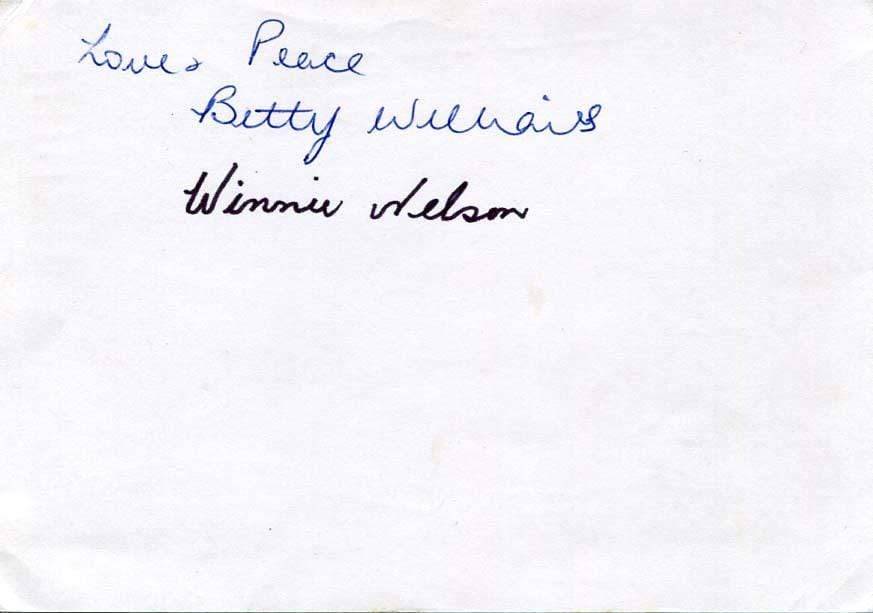 Love & Peace
Betty Williams
Winnie Nelson